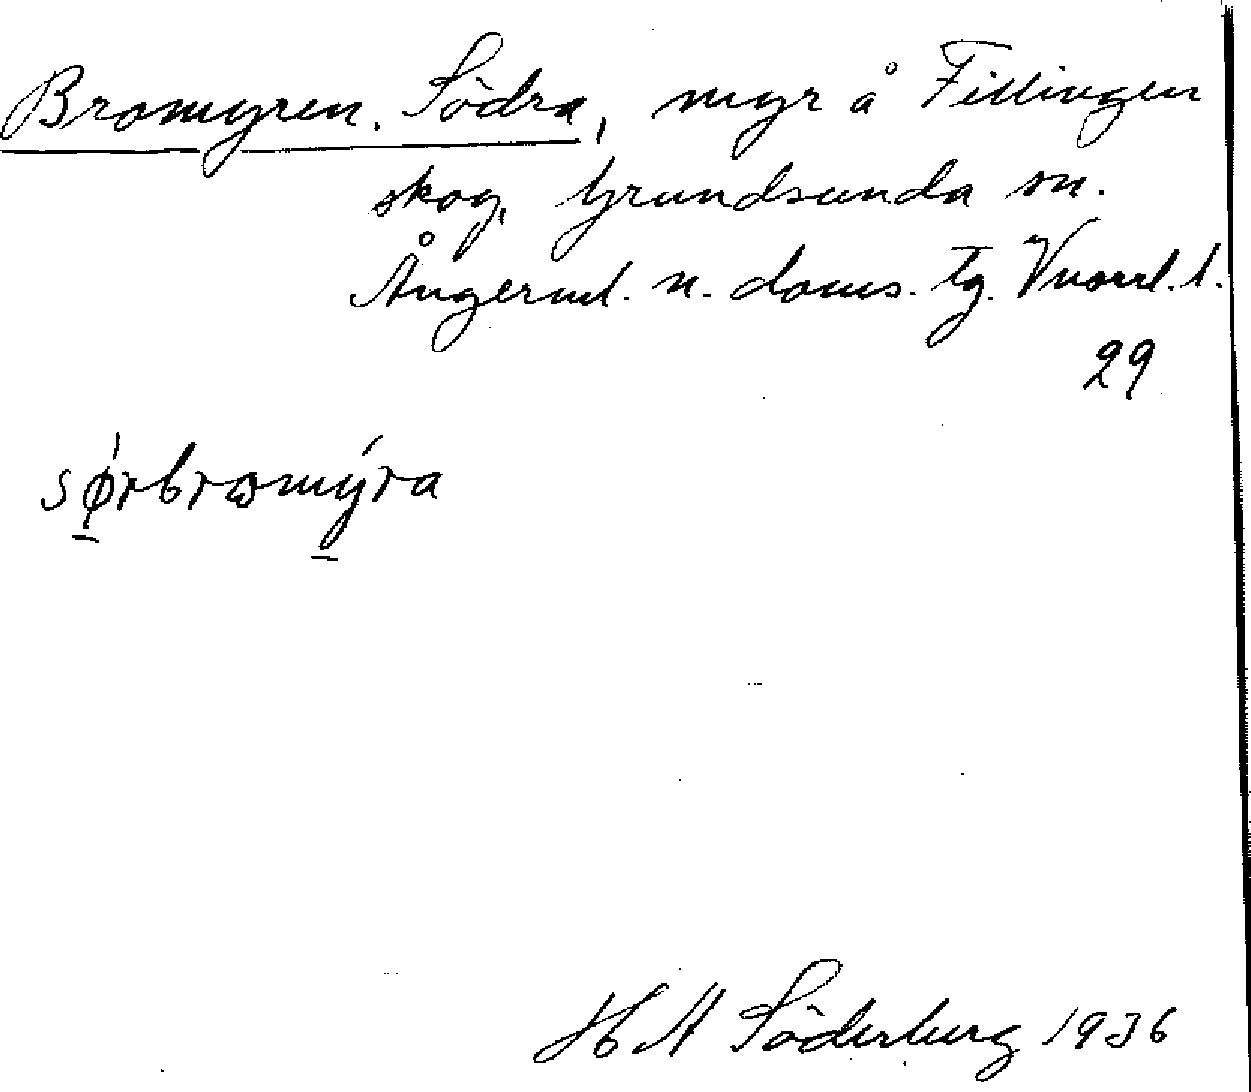 Bromyren, Södra, myr å Fillingen
skog, Grundsunda sn.
Ångerml. n. doms. tg. Vnorrl. l.
29
sørbromýra
H A Söderberg 1936